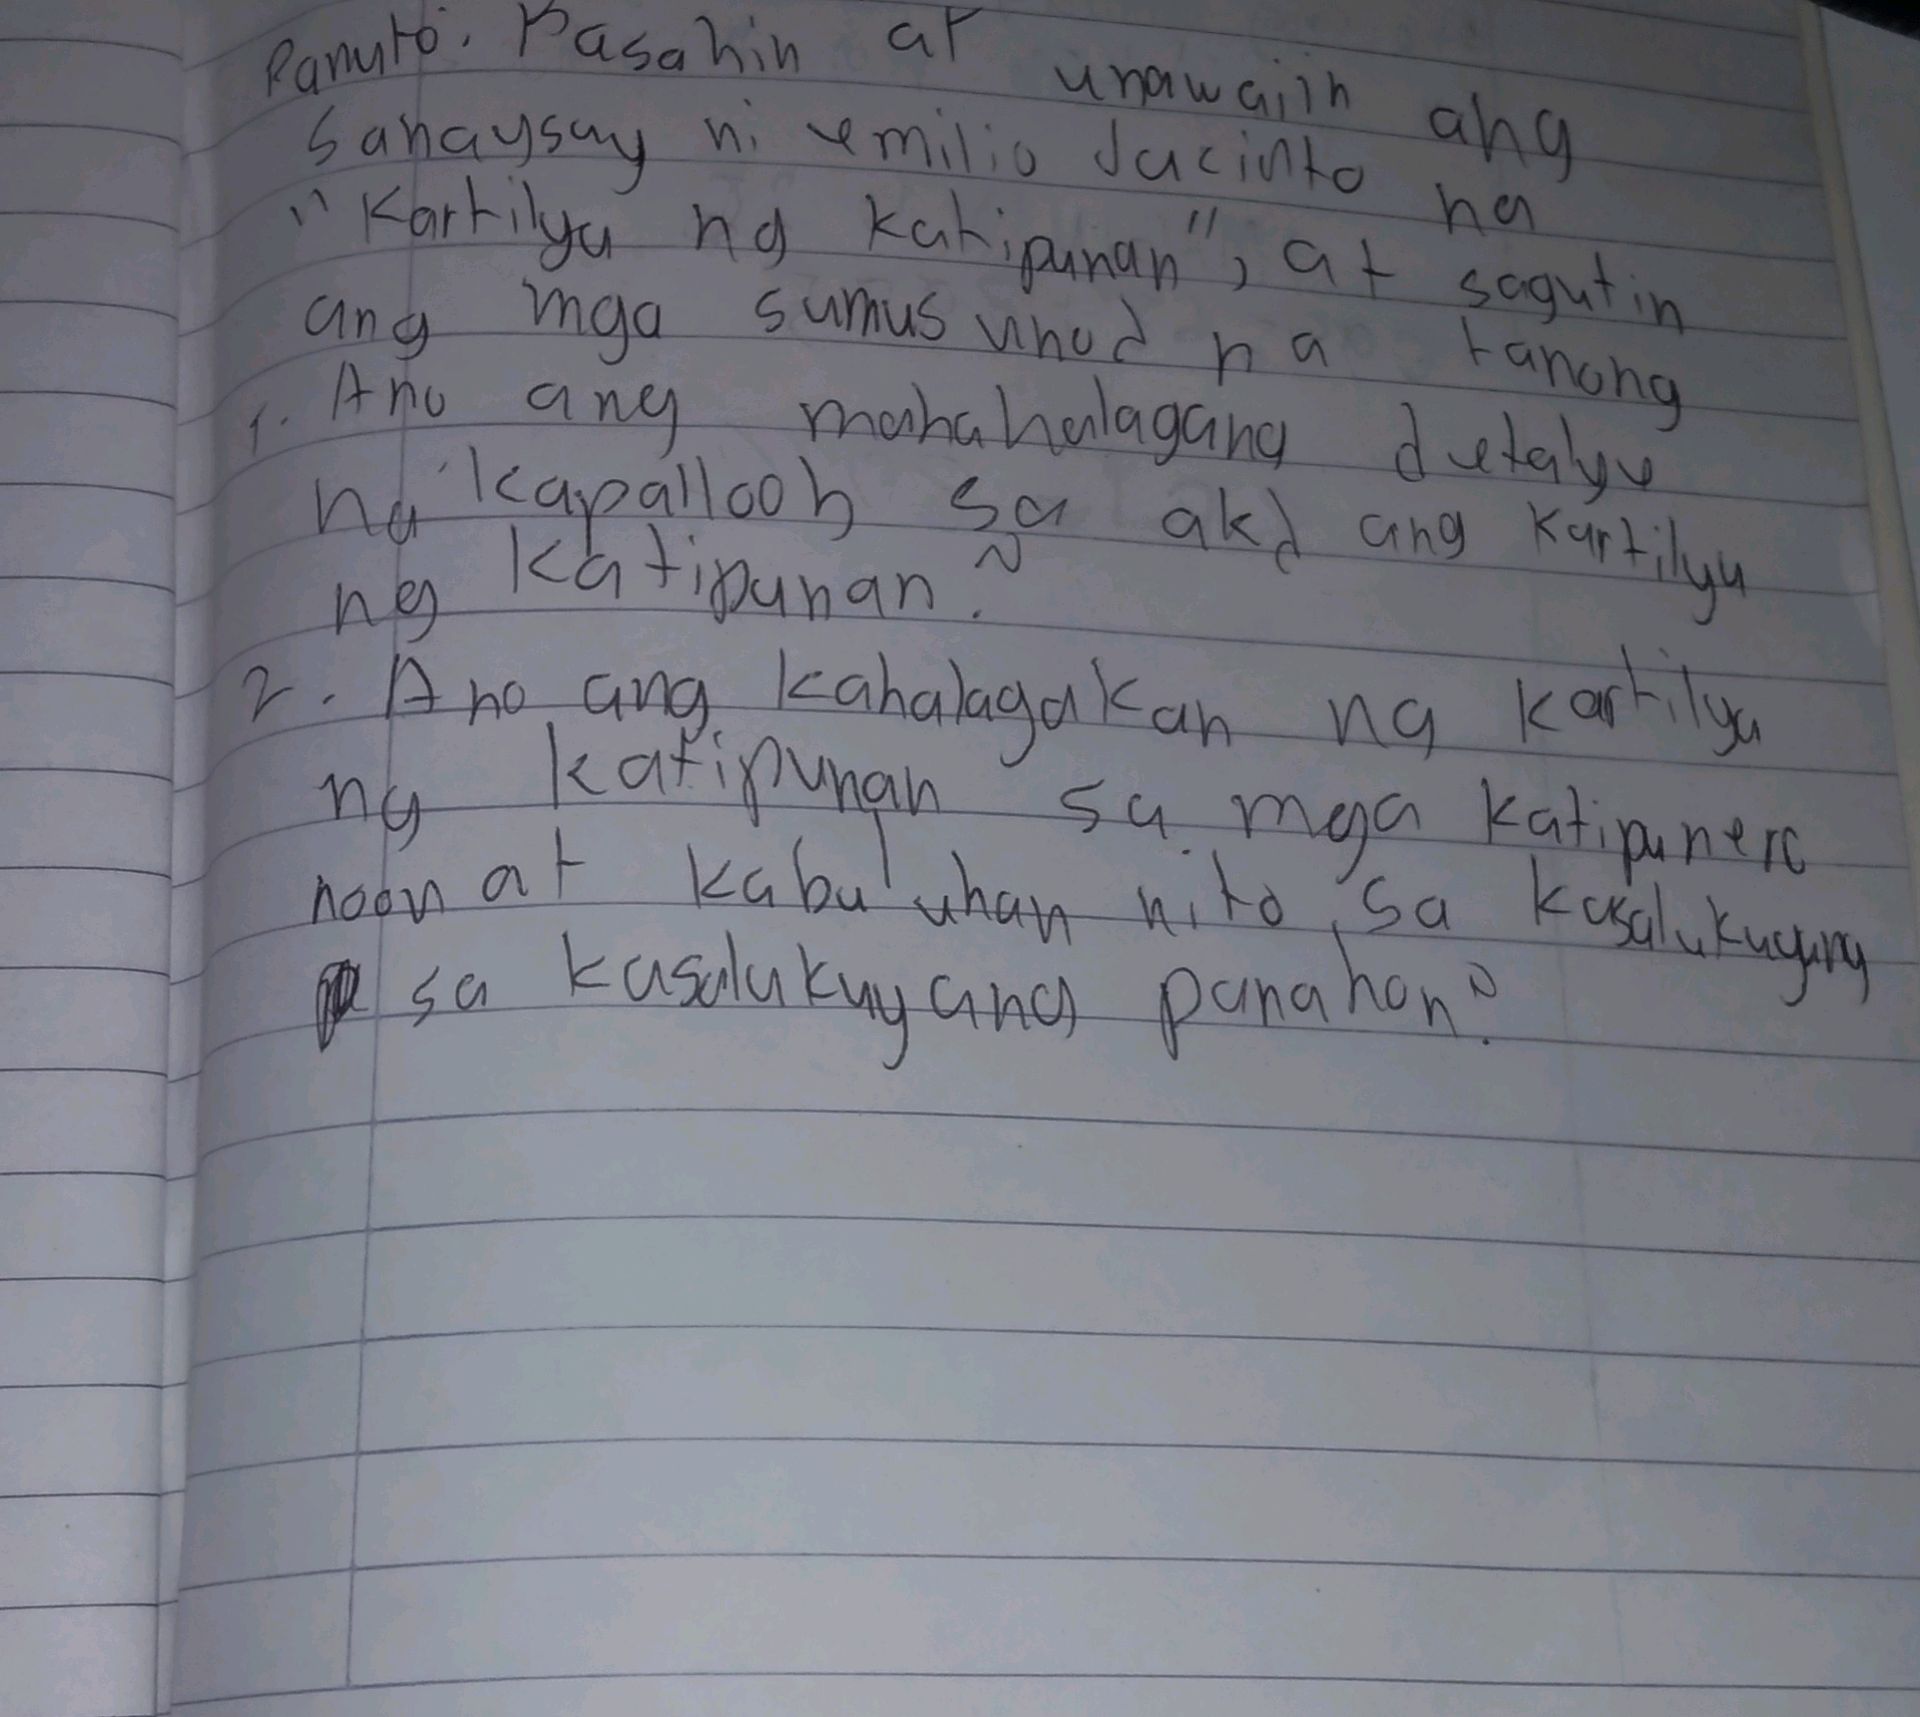 Panuto. Basahin at unawaiin ang
Sanaysay ni emilio Jacinto na
"Kartilya ng katipunan", at sagutin
ang mga sumusunod na tanong
1. Ano ang mahahalagang detalye
na kapalloob sa akd ang Kartilya
ng Katipunan?
2. Ano ang kahalagakan ng kartilya
ng katipunan sa mga katipunero
noon at kabuluhan nito sa kasalukuyang
sa kasalukuyang panahon?